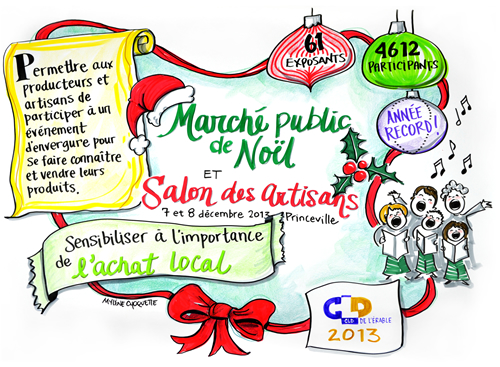 Permettre aux
producteurs et
artisans de
participer à un
événement
d'envergure pour
se faire connaître
et vendre leurs
produits.
61
EXPOSANTS
4612
PARTICIPANTS
ANNÉE
RECORD!
Marché public
de Noël
ET
Salon des Artisans
7 et 8 décembre 2013 Princeville
Sensibiliser à l'importance
de l'achat local
MYLÈNE CHOQUETTE
CLD
CLD DE L'ÉRABLE
2013